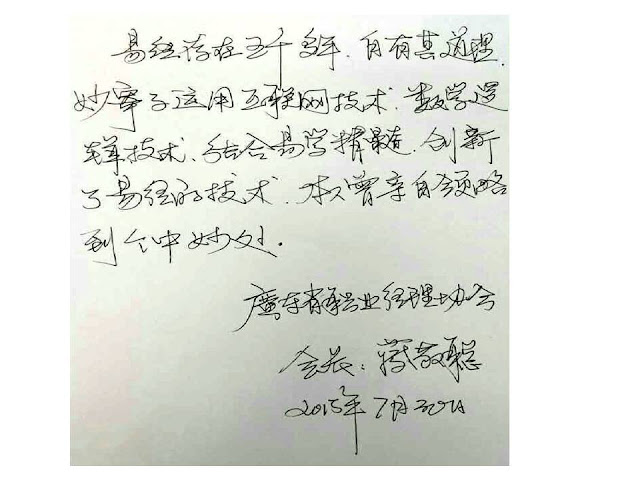 易经存在五千多年,自有其道理,
妙宰子运用互联网技术,数学逻
辑技术,结合易学精髓,创新
了易经的技术,本人曾亲自领略
到个中妙处.
廣东省职业经理协会
会长:蒋敬聪
2015年7月30日